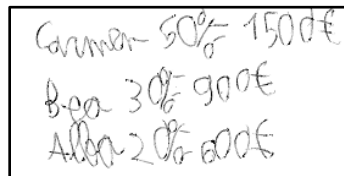 Carmen 50% 1500€
Bea 30% 900€
Alba 20% 600€